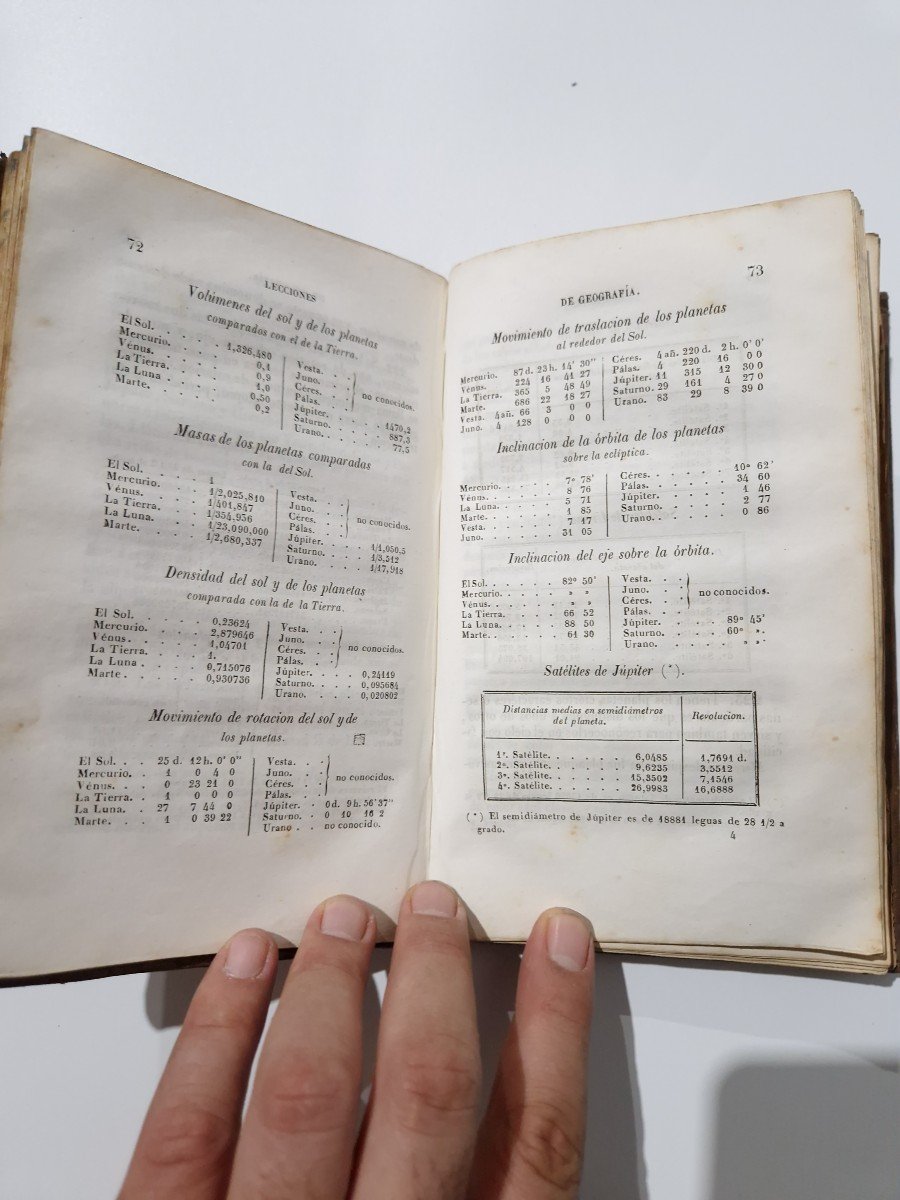 72
LECCIONES
Volúmenes del sol y de los planetas
comparados con el de la Tierra.
El Sol. . . . . 1,326,480
Mercurio. . . . 0,1
Vénus. . . . . 0,9
La Tierra. . . . 1,0
La Luna . . . . 0,50
Marte. . . . . 0,2
Vesta. . .
Juno. . .
Céres. . .
Pálas. . .
no conocidos.
Júpiter. . . . 1470,2
Saturno. . . . 887,3
Urano. . . . . 77,5
Masas de los planetas comparadas
con la del Sol.
El Sol. . . . 1
Mercurio. . . 1/2,025,810
Vénus. . . . 1/401,847
La Tierra. . . 1/354,936
La Luna. . . 1/23,090,000
Marte. . . . 1/2,680,337
Vesta. . .
Juno. . .
Céres. . .
Pálas. . .
no conocidos.
Júpiter. . . . 1/1,050,5
Saturno. . . . 1/3,512
Urano. . . . 1/17,918
Densidad del sol y de los planetas
comparada con la de la Tierra.
El Sol. . . . 0,23624
Mercurio. . . 2,879646
Vénus. . . . 1,04701
La Tierra. . . 1.
La Luna . . . 0,715076
Marte . . . . 0,930736
Vesta. . .
Juno. . .
Céres. . .
Pálas. . .
no conocidos.
Júpiter. . . . 0,24119
Saturno. . . . 0,095684
Urano. . . . 0,020802
Movimiento de rotacion del sol y de
los planetas.
El Sol. . . 25 d. 12 h. 0' 0"
Mercurio. . 1 0 4 0
Vénus. . . 0 23 21 0
La Tierra. . 1 0 0 0
La Luna. . 27 7 44 0
Marte. . . 1 0 39 22
Vesta. . .
Juno. . .
Céres. . .
Pálas. . .
no conocidos.
Júpiter. . 0 d. 9 h. 56' 37"
Saturno. . 0 10 16 2
Urano . . no conocido.
73
DE GEOGRAFÍA.
Movimiento de traslacion de los planetas
al rededor del Sol.
Mercurio. 87 d. 23 h. 14' 30"
Vénus. 224 16 41 27
La Tierra. 365 5 48 49
Marte. 686 22 18 27
Vesta. 4 añ. 66 3 0 0
Juno. 4 128 0 0 0
Céres. 4 añ. 220 d. 2 h. 0' 0'
Pálas. 4 220 16 0 0
Júpiter. 11 315 12 30 0
Saturno. 29 161 4 27 0
Urano. 83 29 8 39 0
Inclinacion de la órbita de los planetas
sobre la eclíptica.
Mercurio. . . . . 7º 78'
Vénus. . . . . . 8 76
La Luna. . . . . 5 71
Marte. . . . . . 1 85
Vesta. . . . . . 7 17
Juno. . . . . . 31 05
Céres. . . . . . 10º 62'
Pálas. . . . . . 34 60
Júpiter. . . . . 1 46
Saturno. . . . . 2 77
Urano. . . . . . 0 86
Inclinacion del eje sobre la órbita.
El Sol. . . . . . 82º 50'
Mercurio. . . . . » »
Vénus. . . . . . » »
La Tierra. . . . . 66 52
La Luna. . . . . 88 50
Marte. . . . . . 61 30
Vesta. . .
Juno. . .
Céres. . .
Pálas. . .
no conocidos.
Júpiter. . . . . 89º 45'
Saturno. . . . . 60º »
Urano. . . . . . » »
Satélites de Júpiter (*).
Distancias medias en semidiámetros
del planeta.
Revolucion.
1º. Satélite. . . . . . 6,0485 1,7691 d.
2º. Satélite. . . . . . 9,6235 3,5512
3º. Satélite. . . . . . 15,3502 7,1546
4º. Satélite. . . . . . 26,9983 16,6888
(*) El semidiámetro de Júpiter es de 18881 leguas de 28 1/2 a
grado.
4